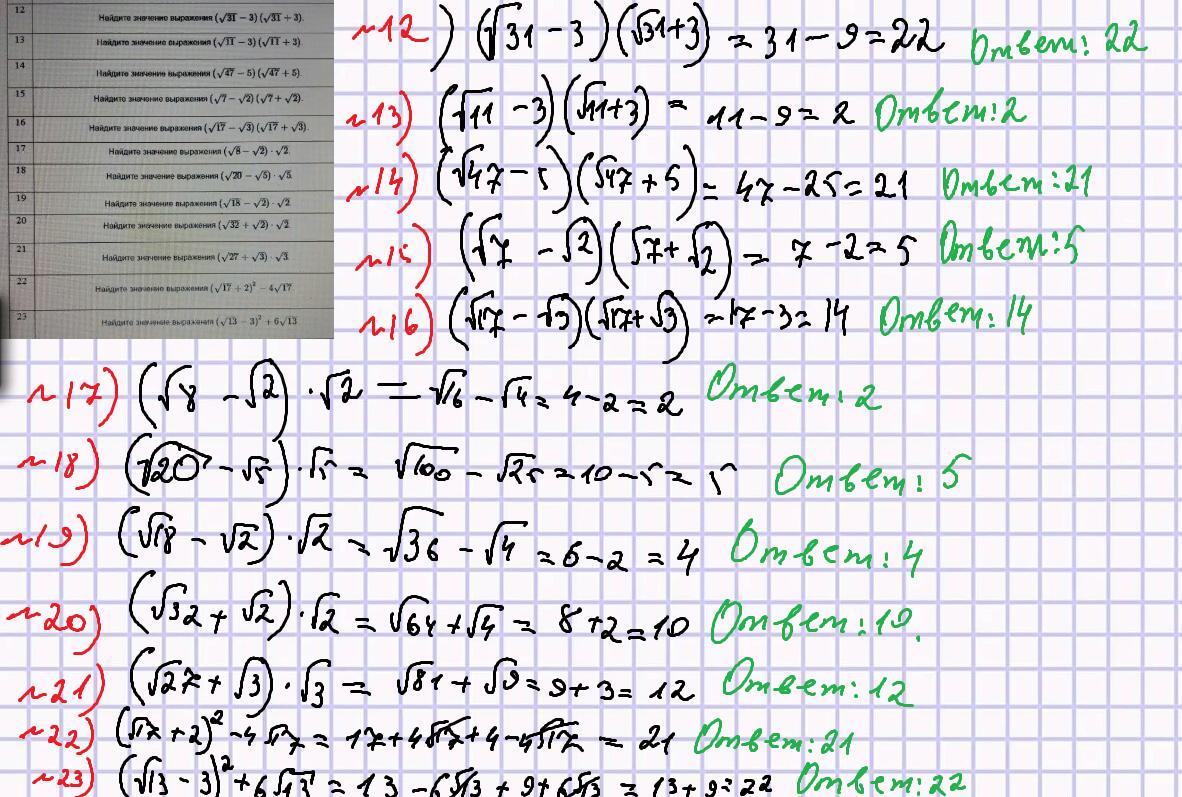 12
Найдите значение выражения (√31 − 3)(√31 + 3).
13
Найдите значение выражения (√11 − 3)(√11 + 3).
14
Найдите значение выражения (√47 − 5)(√47 + 5).
15
Найдите значение выражения (√7 − √2)(√7 + √2).
16
Найдите значение выражения (√17 − √3)(√17 + √3).
17
Найдите значение выражения (√8 − √2) · √2.
18
Найдите значение выражения (√20 − √5) · √5.
19
Найдите значение выражения (√18 − √2) · √2.
20
Найдите значение выражения (√32 + √2) · √2.
21
Найдите значение выражения (√27 + √3) · √3.
22
Найдите значение выражения (√17 + 2)² − 4√17.
23
Найдите значение выражения (√13 − 3)² + 6√13.
№12) (√31 − 3)(√31+3) = 31 − 9 = 22 Ответ: 22
№13) (√11 − 3)(√11+3) = 11 − 9 = 2 Ответ: 2
№14) (√47 − 5)(√47 + 5) = 47 − 25 = 21 Ответ: 21
№15) (√7 − √2)(√7 + √2) = 7 − 2 = 5 Ответ: 5
№16) (√17 − √3)(√17 + √3) = 17 − 3 = 14 Ответ: 14
№17) (√8 − √2) · √2 = √16 − √4 = 4 − 2 = 2 Ответ: 2
№18) (√20 − √5) · √5 = √100 − √25 = 10 − 5 = 5 Ответ: 5
№19) (√18 − √2) · √2 = √36 − √4 = 6 − 2 = 4 Ответ: 4
№20) (√32 + √2) · √2 = √64 + √4 = 8 + 2 = 10 Ответ: 10.
№21) (√27 + √3) · √3 = √81 + √9 = 9 + 3 = 12 Ответ: 12
№22) (√17 + 2)² − 4√17 = 17 + 4√17 + 4 − 4√17 = 21 Ответ: 21
№23) (√13 − 3)² + 6√13 = 13 − 6√13 + 9 + 6√13 = 13 + 9 = 22 Ответ: 22